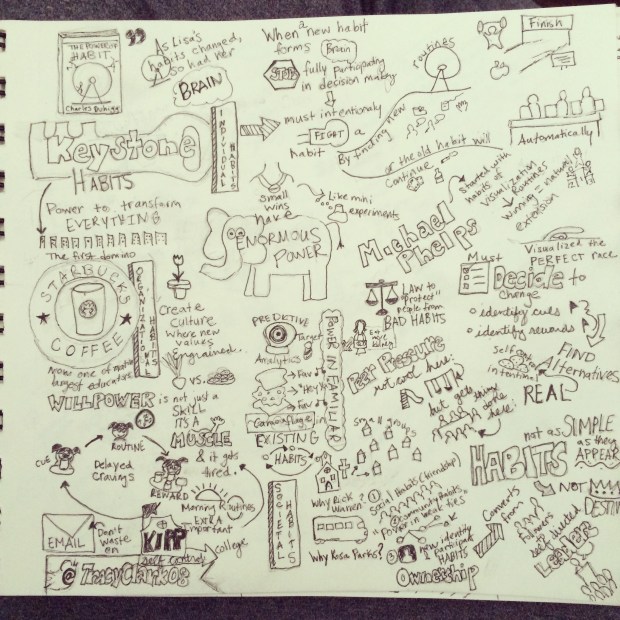 THE POWER OF
HABIT
Charles Duhigg
As Lisa's
habits changed,
so had her
BRAIN
When a new habit
forms Brain
STOP fully participating
in decision making
must intentionally
FIGHT a
habit
By finding new
routines
or the old habit will
Continue
Finish
Automatically
Keystone
HABITS
INDIVIDUAL
HABITS
Power to transform
EVERYTHING
The first domino
Small
wins
have
ENORMOUS
POWER
Like mini
experiments
Michael
Phelps
started with
habits of
visualization
routines
winning = natural
extension
Visualized the
PERFECT race
STARBUCKS
COFFEE
now one of nations
largest educators
ORGANIZATIONAL
HABITS
Create
Culture
where new
values
Engrained.
vs.
PREDICTIVE
Target
Analytics
Fav
"Hey Ya"
Fav
Camouflage in
EXISTING
HABITS
POWER IN FAMILIAR
LAW to
"protect"
people from
BAD HABITS
Must
Decide to
change
identify cues
identify rewards
FIND
Alternatives
Self
intentional
REAL
Peer Pressure
not cool here:
but gets
things
done
here!
small groups
WILLPOWER is not just a
SKILL
ITS A
MUSCLE
& it gets
tired.
CUE
ROUTINE
REWARD
Delayed
Cravings
Morning Routines
Extra
Important
EMAIL
Don't
waste
on
KIPP
self control
college
@TracyClark08
SOCIETAL
HABITS
Why Rick
Warren?
Why Rosa Parks?
① Social Habits (friendship)
② Community Habits
"Power in weak ties"
③ new identity
participant
HABITS
Ownership
HABITS
not as SIMPLE
as they
APPEAR
NOT
DESTINY
Converts
from
followers
self directed
Leaders